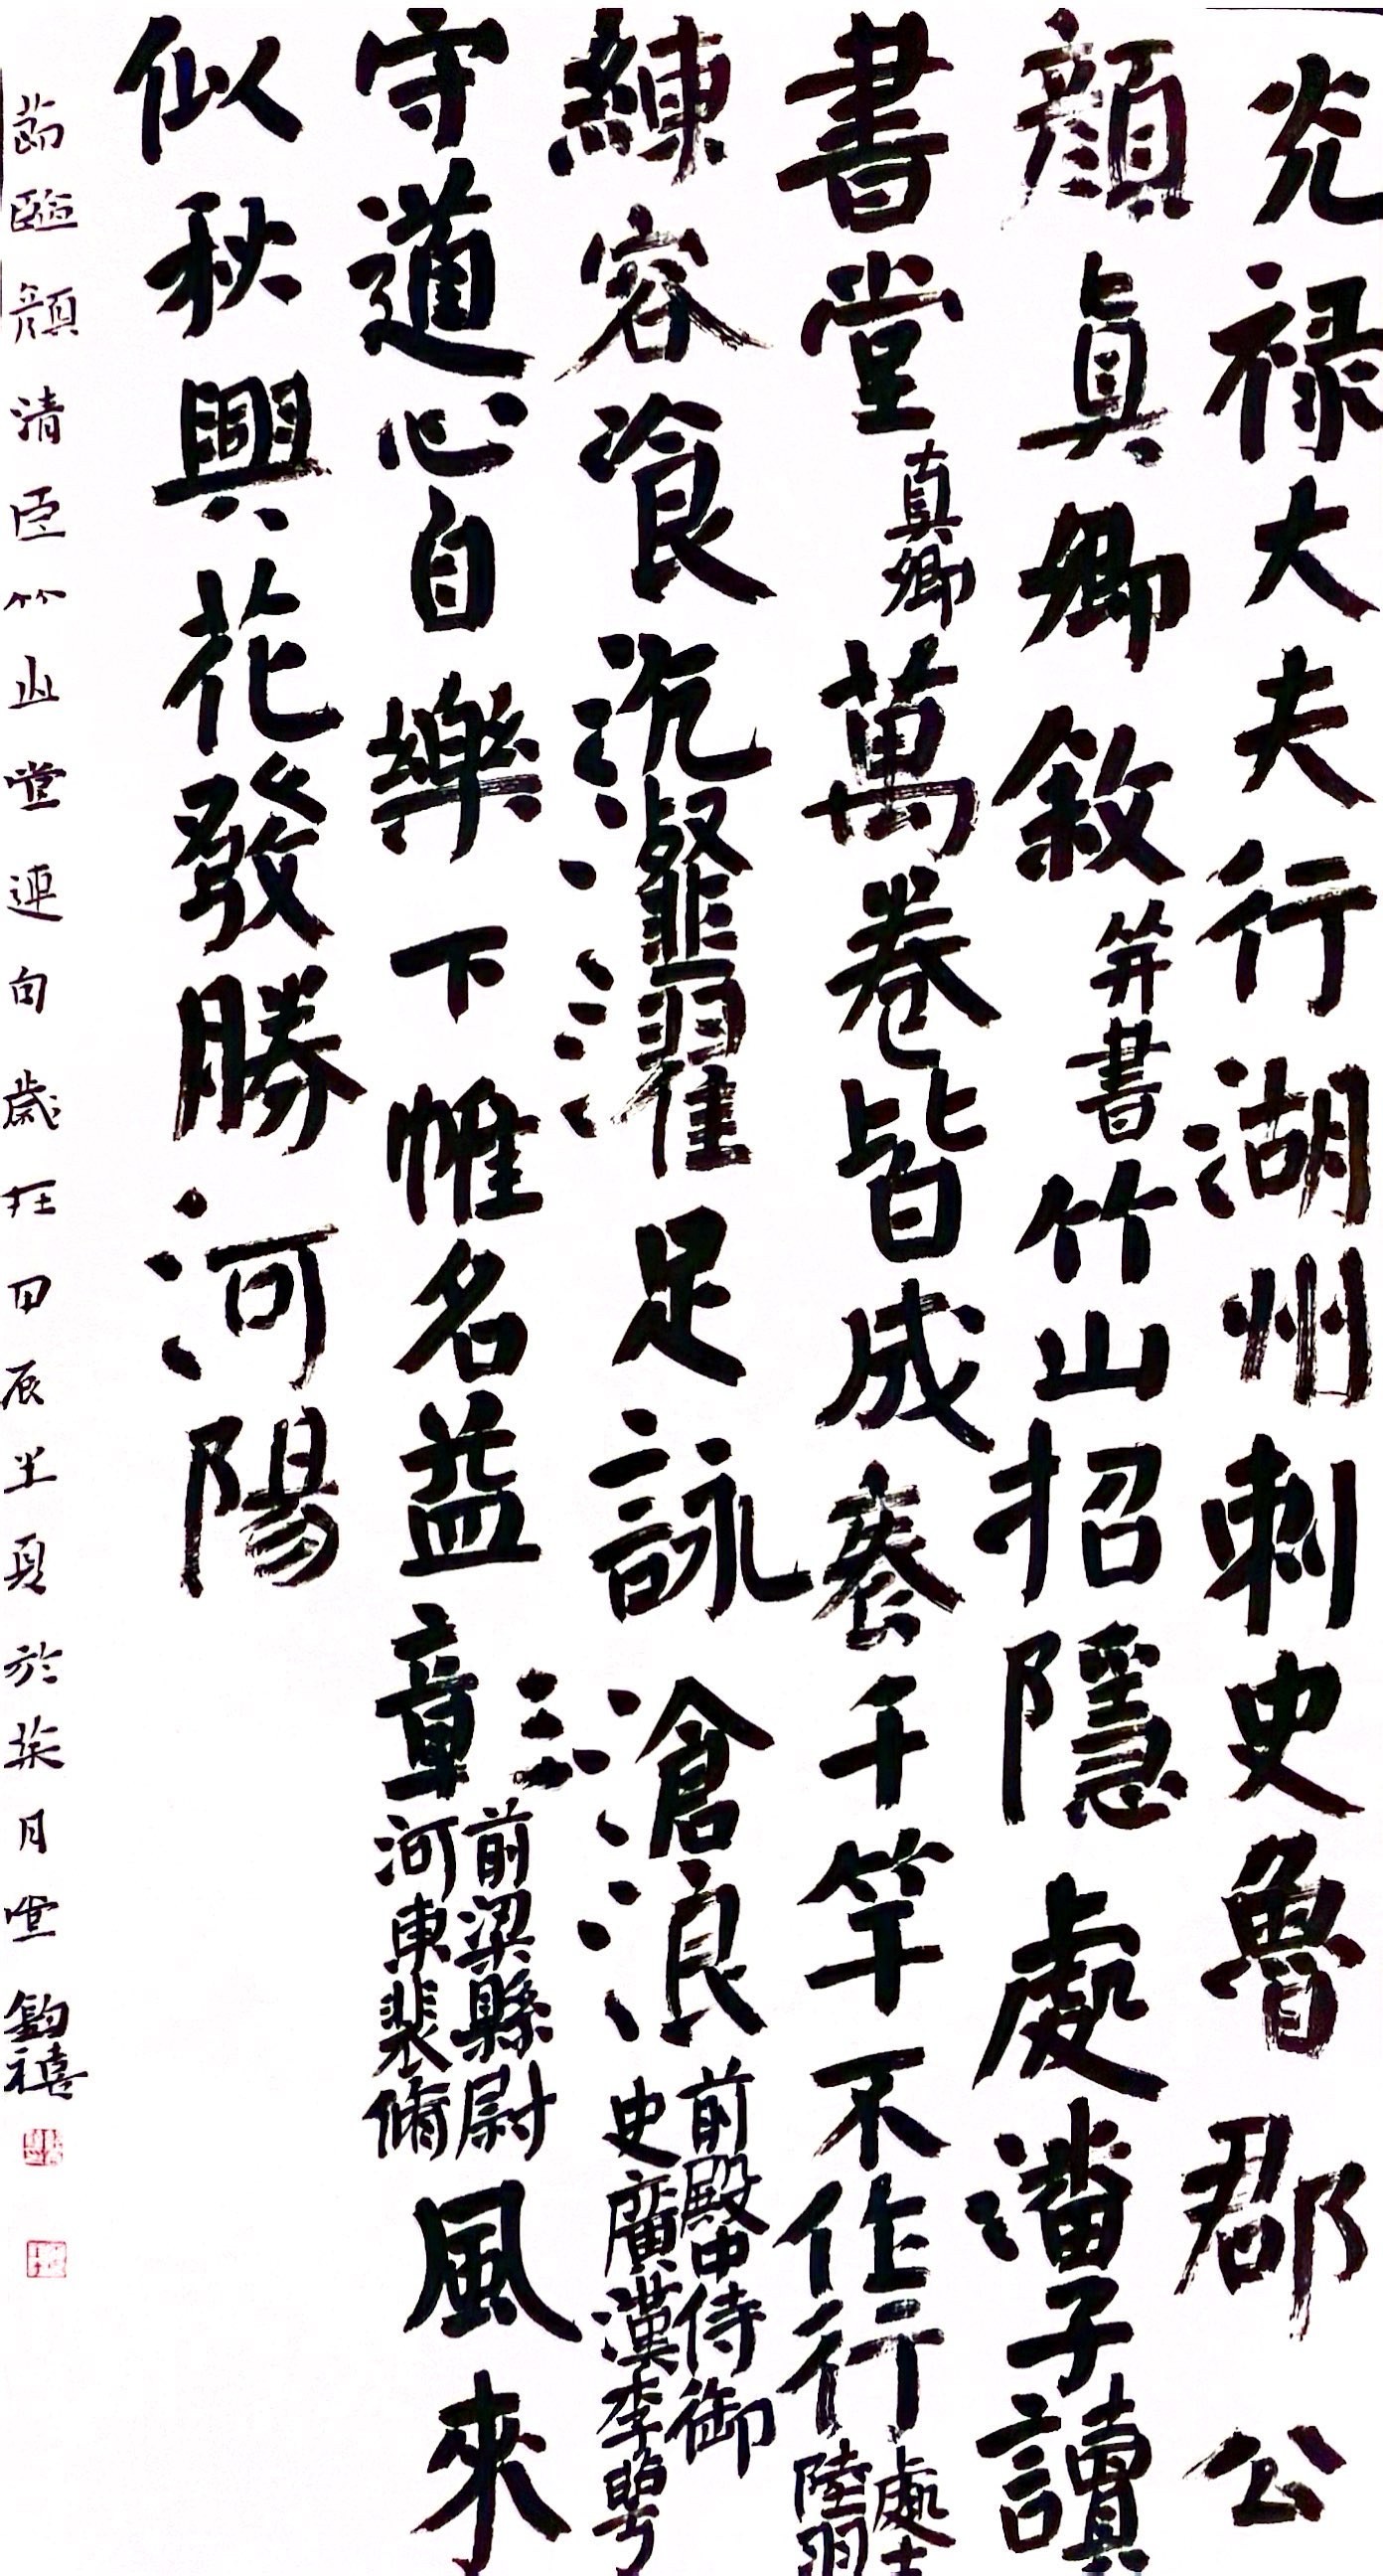 光禄大夫行湖州刺史魯郡公
顏真卿敘并書竹山招隱處潘子讀
書堂真卿萬卷皆成袠千竿不作行處士陸羽
練容飡沆瀣濯足詠滄浪前殿中侍御史廣漢李㟧
守道心自樂下帷名益章三前梁縣尉河東裴脩風來
似秋興花發勝河陽
節臨顏清臣竹山堂連句歲在甲辰坐夏於葉月堂